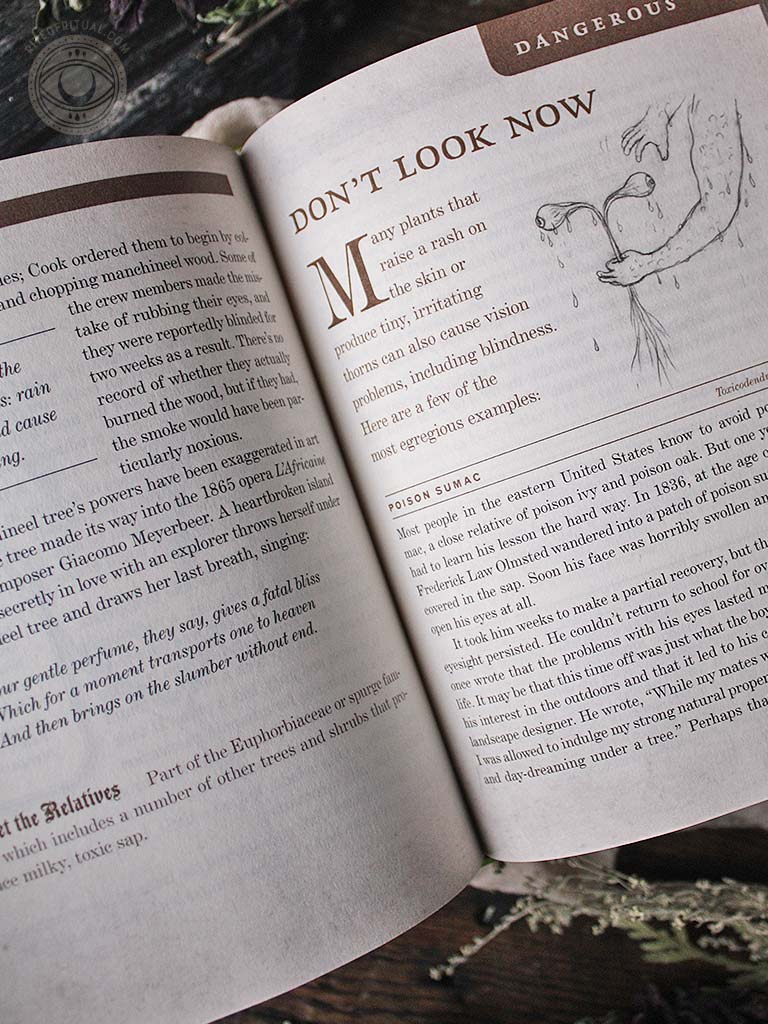 RITEOFRITUAL.COM
es; Cook ordered them to begin by col-
and chopping manchineel wood. Some of
the crew members made the mis-
take of rubbing their eyes, and
they were reportedly blinded for
two weeks as a result. There's no
record of whether they actually
burned the wood, but if they had,
the smoke would have been par-
ticularly noxious.
the
s: rain
d cause
ng.
ineel tree's powers have been exaggerated in art
tree made its way into the 1865 opera L'Africaine
mposer Giacomo Meyerbeer. A heartbroken island
secretly in love with an explorer throws herself under
eel tree and draws her last breath, singing:
ur gentle perfume, they say, gives a fatal bliss
Which for a moment transports one to heaven
And then brings on the slumber without end.
et the Relatives Part of the Euphorbiaceae or spurge fam-
which includes a number of other trees and shrubs that pro-
ce milky, toxic sap.
DANGEROUS
DON'T LOOK NOW
Many plants that
raise a rash on
the skin or
produce tiny, irritating
thorns can also cause vision
problems, including blindness.
Here are a few of the
most egregious examples:
POISON SUMAC
Toxicodend
Most people in the eastern United States know to avoid po
mac, a close relative of poison ivy and poison oak. But one y
had to learn his lesson the hard way. In 1836, at the age o
Frederick Law Olmsted wandered into a patch of poison su
covered in the sap. Soon his face was horribly swollen an
open his eyes at all.
It took him weeks to make a partial recovery, but th
eyesight persisted. He couldn't return to school for ov
once wrote that the problems with his eyes lasted m
life. It may be that this time off was just what the boy
his interest in the outdoors and that it led to his c
landscape designer. He wrote, "While my mates w
I was allowed to indulge my strong natural proper
and day-dreaming under a tree." Perhaps tha